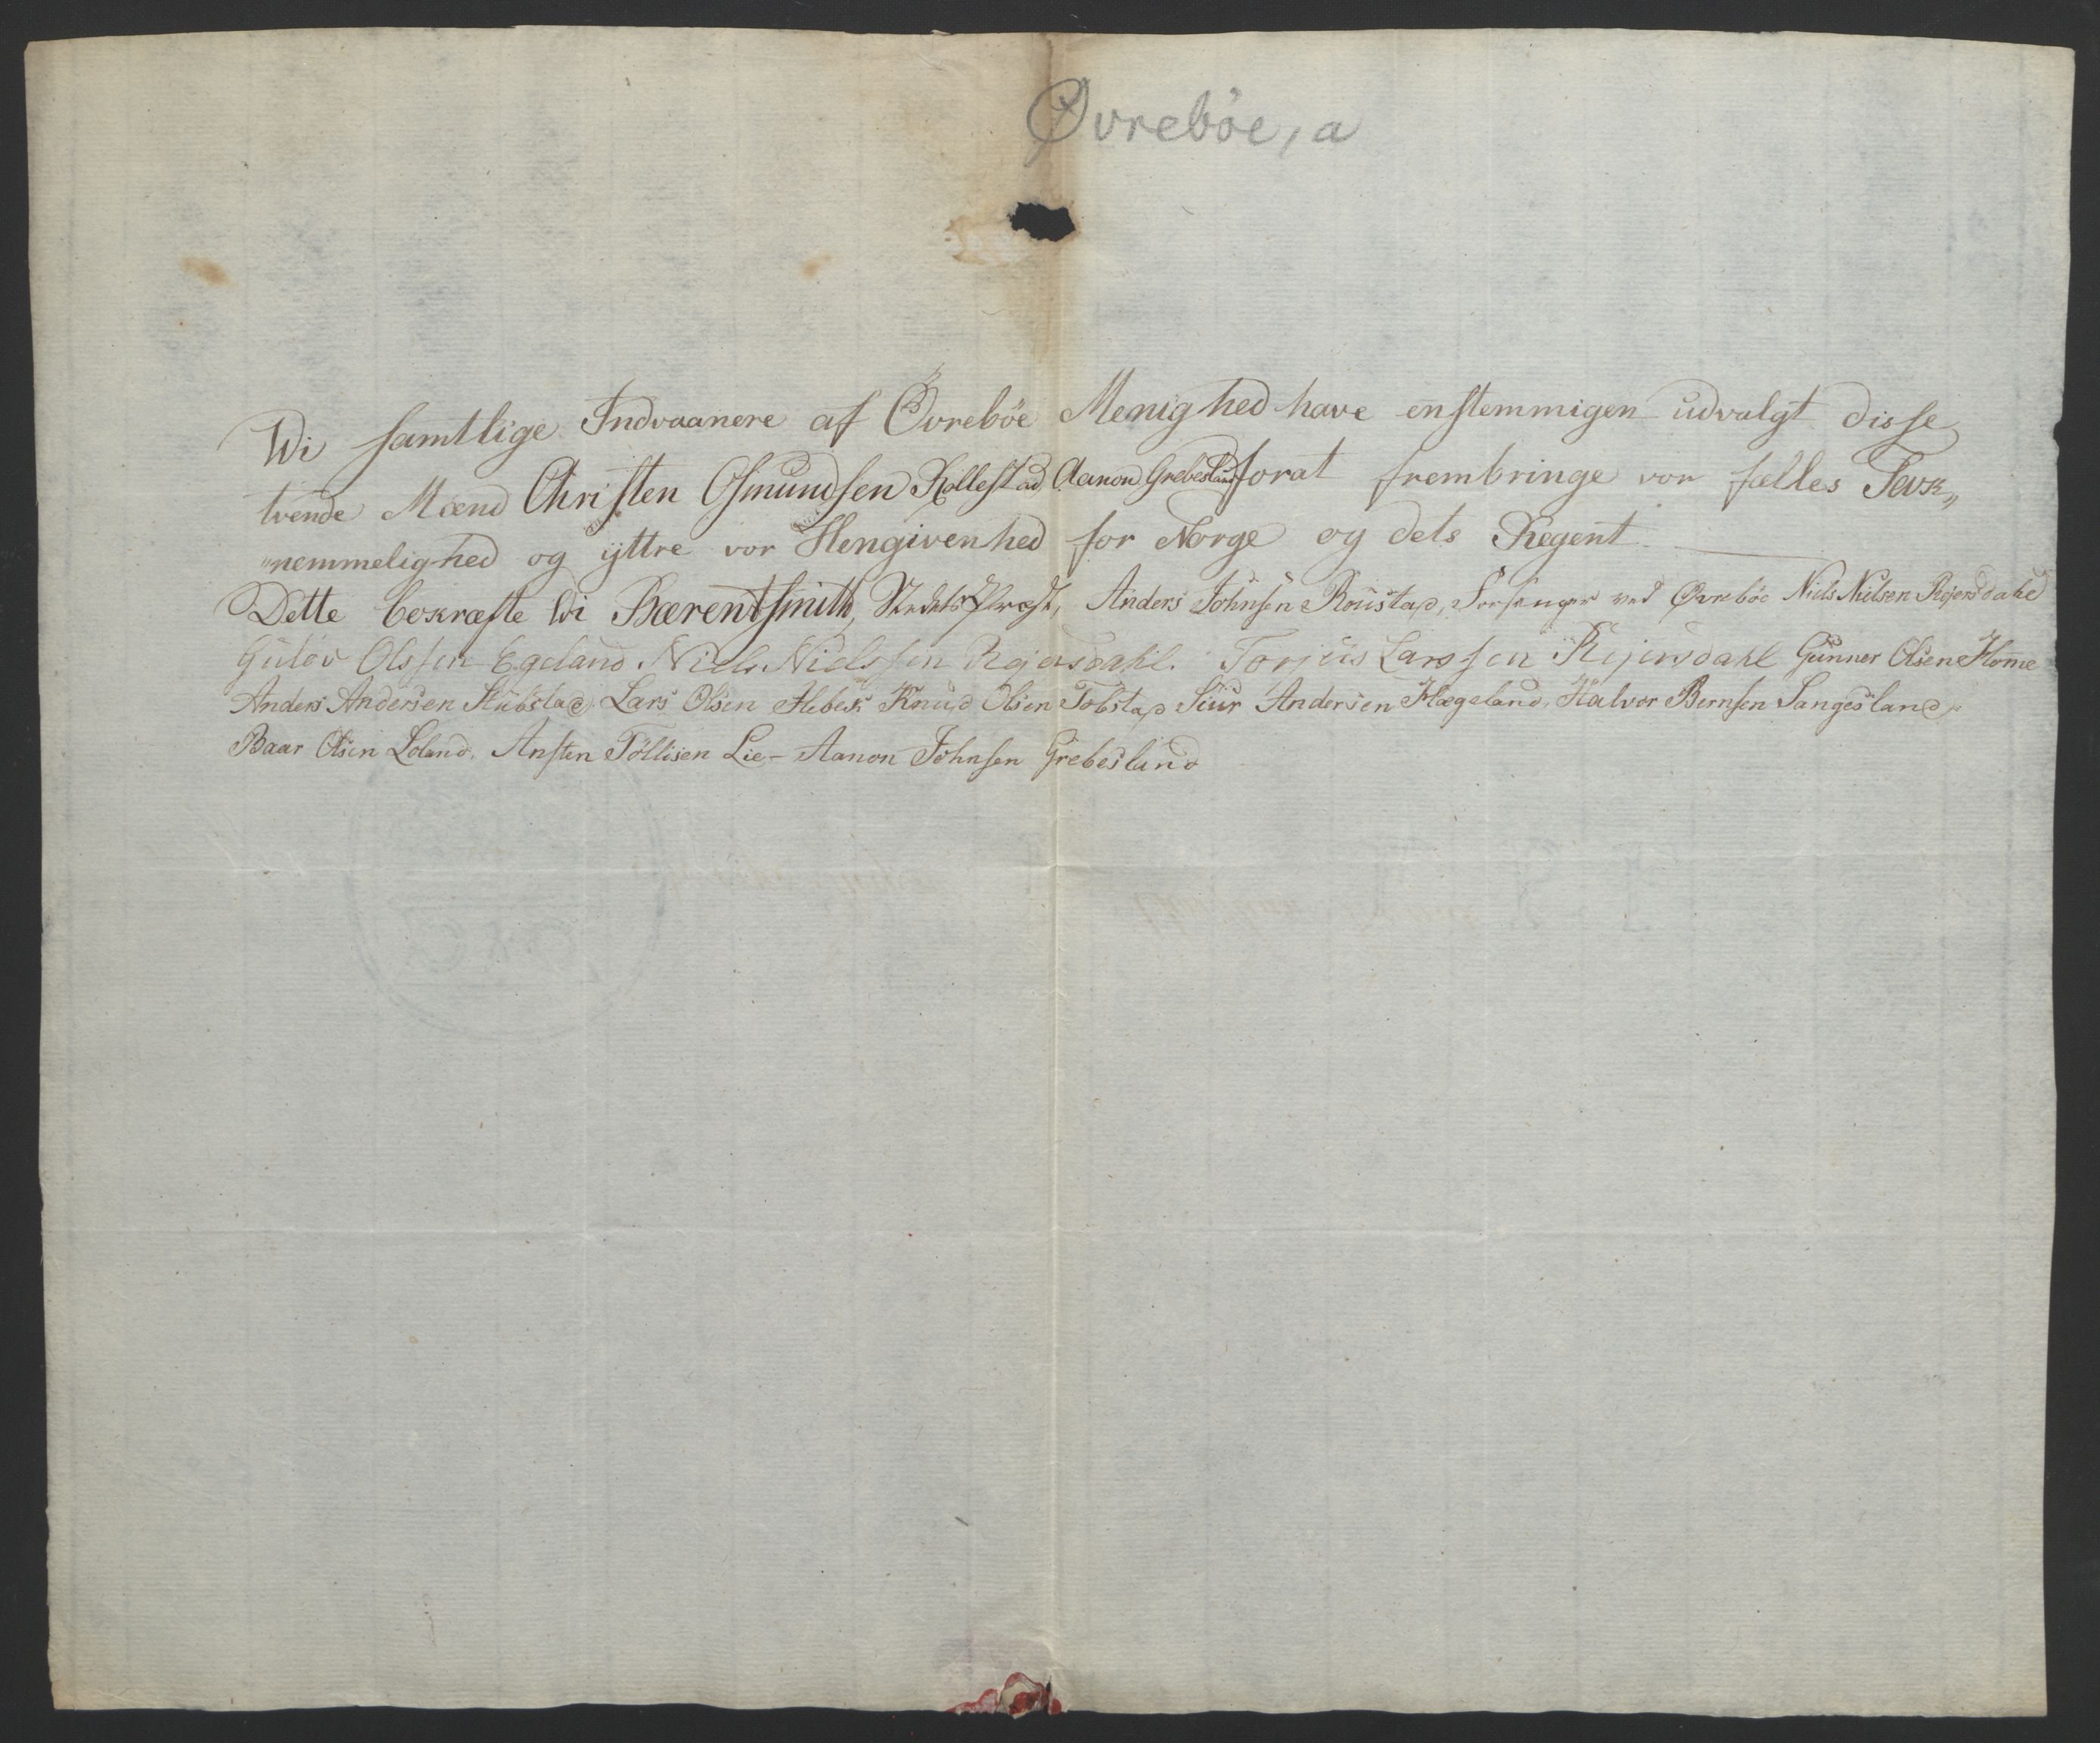 Øvrebøe, a
Wi samtlige Indvaanere af Övreböe Menighed have enstemmigen udvalgt disse
tvende Mænd Christen Osmundsen Kallestad Aanon Grebesland forat frembringe vor fælles Tavk„
„nemmelighed og ÿttre vor Hengivenhed for Norge og dets Regent
Dette bekræfte Wi Bærent Smith, Stedets Præst, Anders Johnsen Roustad, Forsanger ved Øvrebøe Niels Nielsen Rejersdahl
Guløv Olssen Egeland Niels Nielssen Rejersdahl. Torjuis Larssen Rejersdahl Gunner Olsen Home
Anders Andersen Stubstad Lars Olsen Hebek Knud Olsen Tobstad Siur Andersen Hægeland, Halvor Bernsen Sangesland
Baar Olsen Loland. Ansten Töllisen Lie - Aanon Johnsen Grebesland